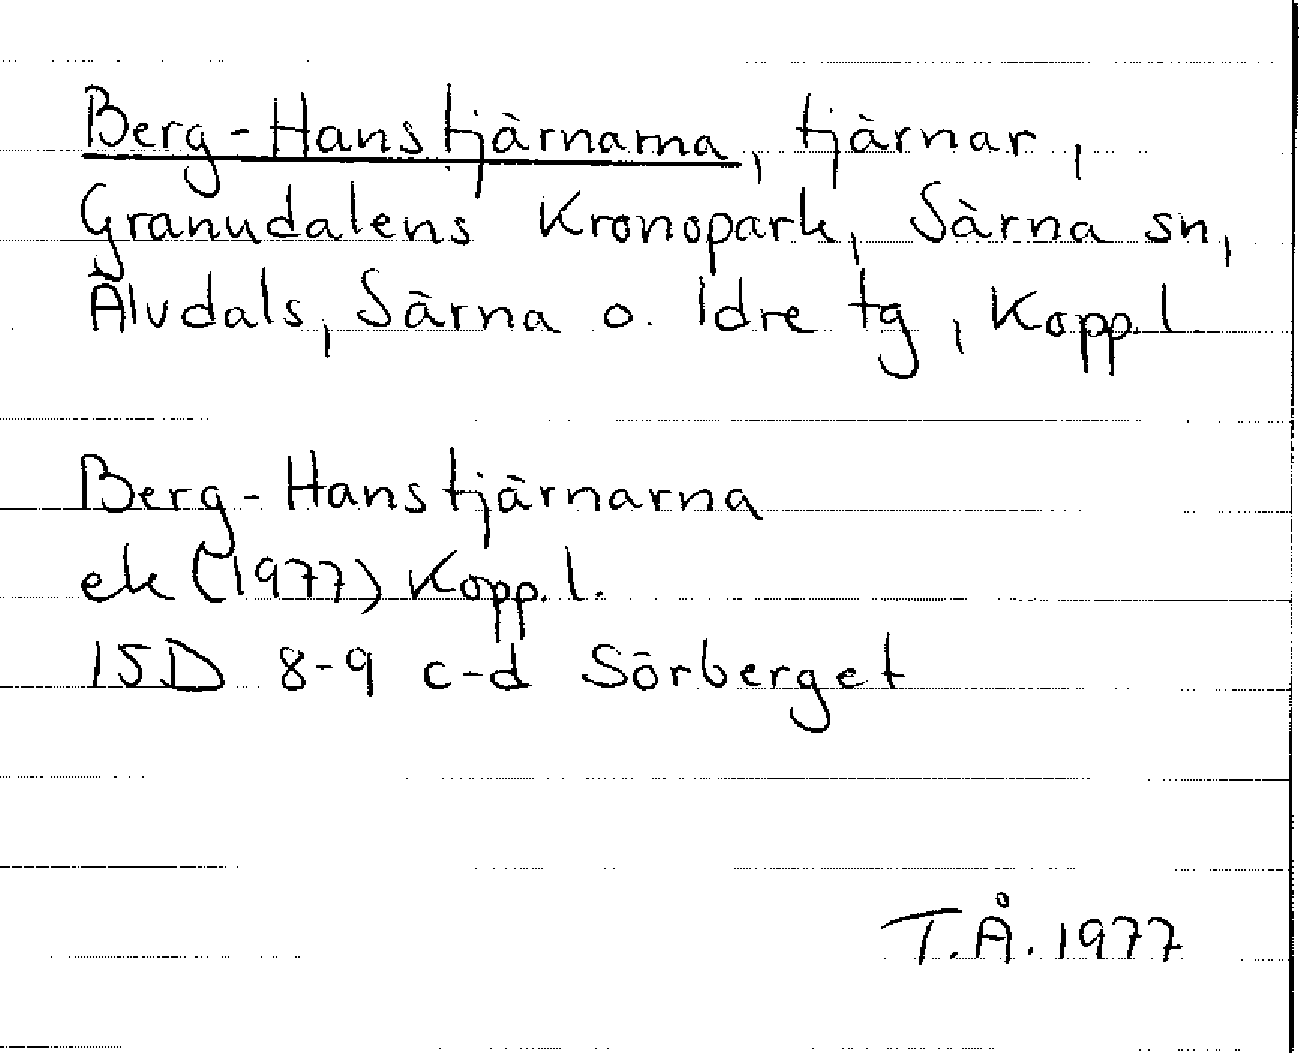 Berg-Hanstjärnarna, tjärnar,
Granudalens Kronopark, Särna sn,
Älvdals, Särna o. Idre tg, Kopp.l
Berg-Hanstjärnarna
ek (1977) Kopp.l.
15D 8-9 c-d Sörberget
T.Å. 1977